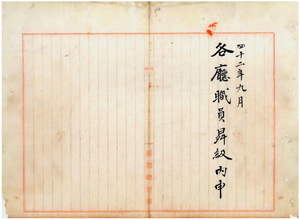 四十二年九月
各廳職員昇級內申